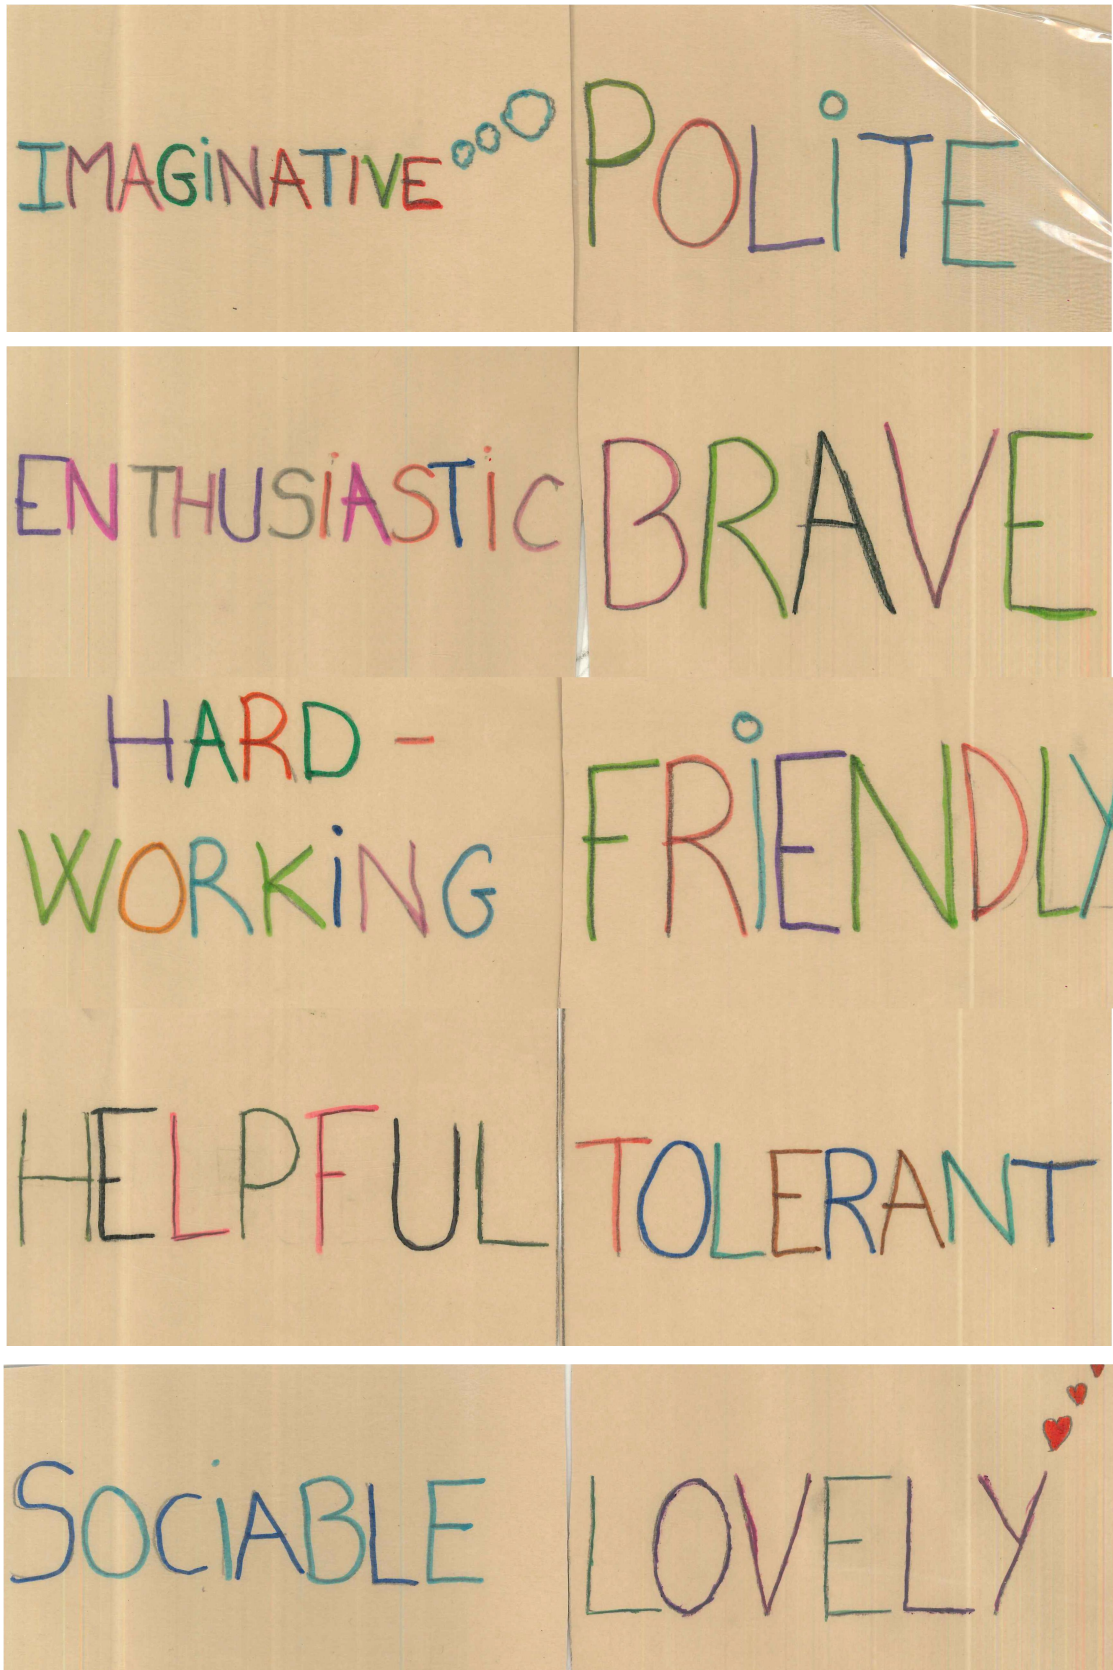 IMAGiNATIVE
POLiTE
ENTHUSiASTiC
BRAVE
HARD-
WORKiNG
FRiENDLY
HELPFUL
TOLERANT
SOCiABLE
LOVELY